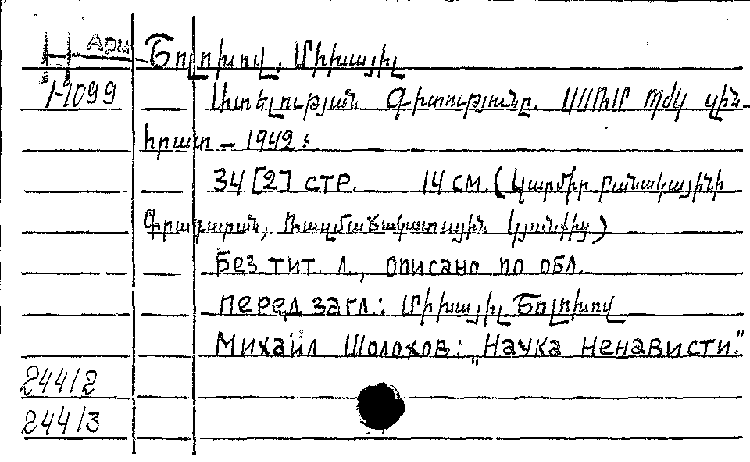 Н Арм Շոլոխով, Միխայիլ
1-1099 Ատելության Գիտությունը. ՍՍՌՄ Պժկ զին-
հրատ – 1942 ։
34 [2] стр. 14 см. (Կարմիր բանակայինի
Գրադարան,
Без тит. л., описано по обл.
перед загл.: Միխայիլ Շոլոխով
Михаил Шолохов: „Наука ненависти."
244/2
244/3